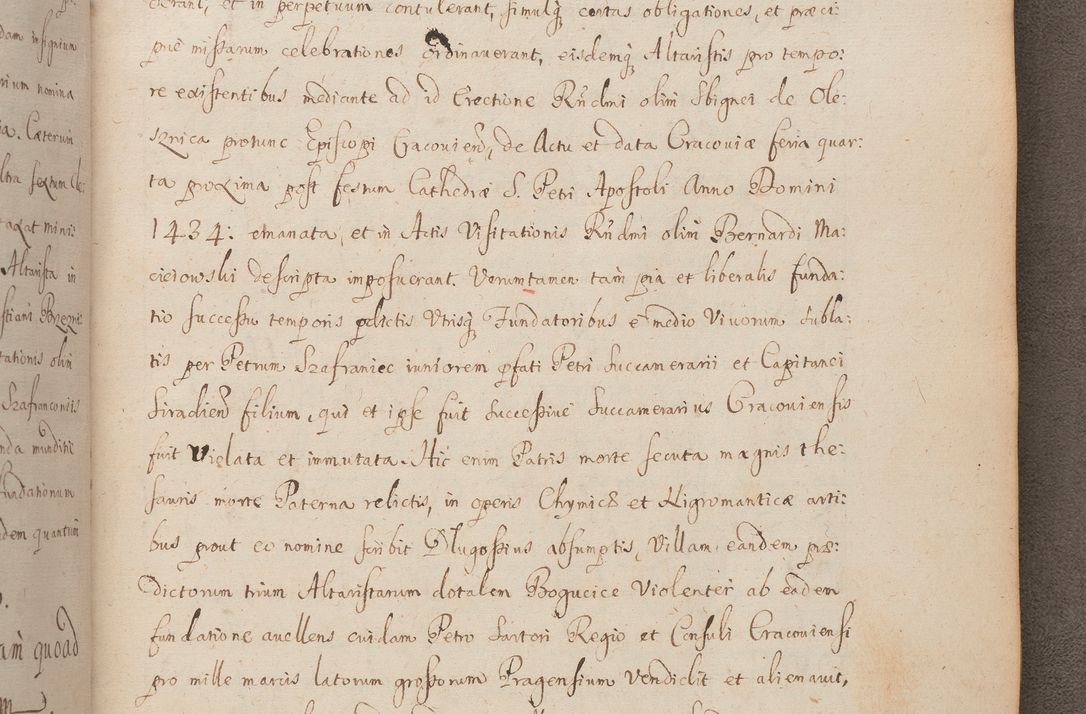 dam insignium
rium nomina
ia. Cæterum
ltra sextum
taxat mini:
Altarista in
stiani Brzezni:
tationis olim
Szafranconiis
nda munditie
fundationum
dem quantum
am quoad
erant, et in perpetuum contulerant, simulq́ certas obligationes, et præci:
pue missarum celebrationes ordinaverant, eisdemq́ Altaristis pro tempo:
re existentibus mediante ad id Erectione Rñdmi olim Sbignei de Ole:
sznica protunc Episcopi Cracovień, de Actu et data Cracoviæ feria quar:
ta proxima post festum Cathedræ S. Petri Apostoli Anno Domini
1434: emanata, et in Actis Visitationis Rñdmi olim Bernardi Ma:
cieiowski descripta imposuerant. Verumtamen tam pia et liberalis funda:
tio successu temporis pdictis Utrisq́ Fundatoribus e medio Vivorum subla:
tis per Petrum Szafraniec iuniorem pfati Petri Succamerarii et Capitanei
Siradień filium, qui et ipse fuit successive Succamerarius Cracoviensis
fuit Violata et immutata. Hic enim Patris morte secuta magnis the:
sauris morte Paterna relictis, in operis Chymicæ et Nigromanticæ arti:
bus prout eo nomine scribit Dlugossius absumptis, Villam eandem præ:
dictorum trium Altaristarum dotalem Bogucice Violenter ab eadem
fundatione avellens cuidam Petro Sartori Regio et Consuli Cracoviensi
pro mille marcis latorum grossorum Pragensium Vendidit et alienavit,